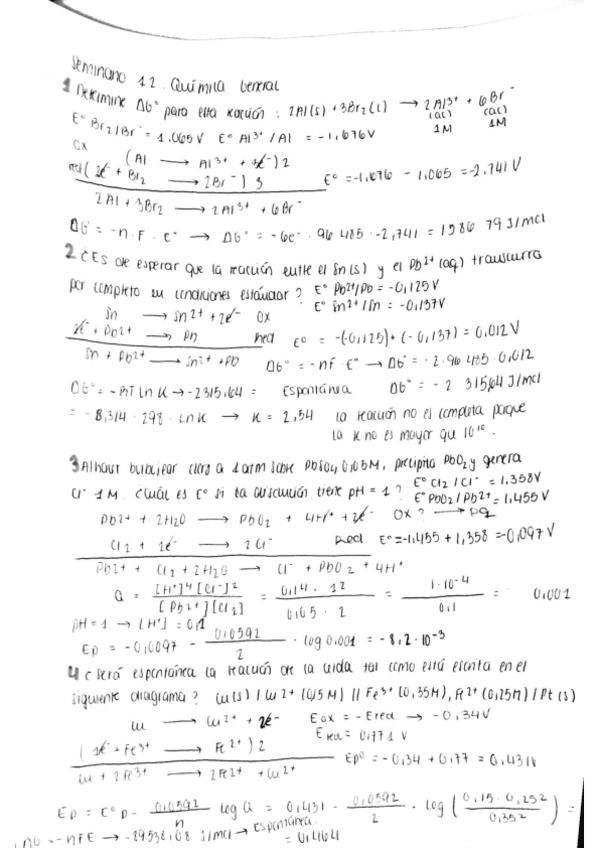 Seminario 12. Química General
1 Determine ΔG° para esta reacción: 2Al(s) + 3Br2(l) → 2Al3+ + 6Br-
(ac) (ac)
1M 1M
E° Br2/Br- = 1.065V E° Al3+/Al = -1,676V
Ox (Al → Al3+ + 3e-) 2
red (2e- + Br2 → 2Br-) 3 E° = -1,676 - 1,065 = -2,741 V
2Al + 3Br2 → 2Al3+ + 6Br-
ΔG° = -n·F·E° → ΔG° = -6e- · 96 485 · -2,741 = 1586 79 J/mol
2 ¿Es de esperar que la reacción entre el Sn(s) y el Pb2+ (aq) transcurra
por completo en condiciones estándar? E° Pb2+/Pb = -0,125V
E° Sn2+/Sn = -0,137V
Sn → Sn2+ + 2e- Ox
2e- + Pb2+ → Pb Red E° = -(-0,125) + (-0,137) = 0,012 V
Sn + Pb2+ → Sn2+ + Pb ΔG° = -nF·E° → ΔG° = -2·96 485·0,012
ΔG° = -RT Ln K → -2315,64 = Espontánea ΔG° = -2 315,64 J/mol
= -8,314 · 298 · Ln K → K = 2,54 La reacción no es completa porque
la K no es mayor que 10^10.
3 Al hacer burbujear cloro a 1 atm sobre PbSO4 0,05M, precipita PbO2 y genera
Cl- 1M. ¿Cuál es E° si la disolución tiene pH = 1? E° Cl2/Cl- = 1,358V
E° PbO2/Pb2+ = 1,455V
Pb2+ + 2H2O → PbO2 + 4H+ + 2e- Ox ?
Cl2 + 2e- → 2Cl- Red E° = -1,455 + 1,358 = -0,097V
Pb2+ + Cl2 + 2H2O → Cl- + PbO2 + 4H+
Q = [H+]4 [Cl-]2 / [Pb2+][Cl2] = 0,14 · 12 / 0,05 · 2 = 1·10-4 / 0,1 = 0,001
pH = 1 → [H+] = 0,1
Ep = -0,0097 - 0,0592/2 · log 0,001 = -8,2·10-3
4 ¿Será espontánea la reacción de la celda tal como está escrita en el
siguiente diagrama? Cu(s) / Cu2+ (0,15M) // Fe3+ (0,35M), Fe2+ (0,25M) / Pt(s)
Cu → Cu2+ + 2e- Eox = -Ered → -0,34V
Ered = 0,771 V
(1e- + Fe3+ → Fe2+) 2
Ep° = -0,34 + 0,77 = 0,431V
Cu + 2Fe3+ → 2Fe2+ + Cu2+
Ep = E°p - 0,0592/n log Q = 0,431 - 0,0592/2 · log (0,15 · 0,252 / 0,352) =
ΔG = -nFE → -89538,08 J/mol → Espontánea. = 0,464